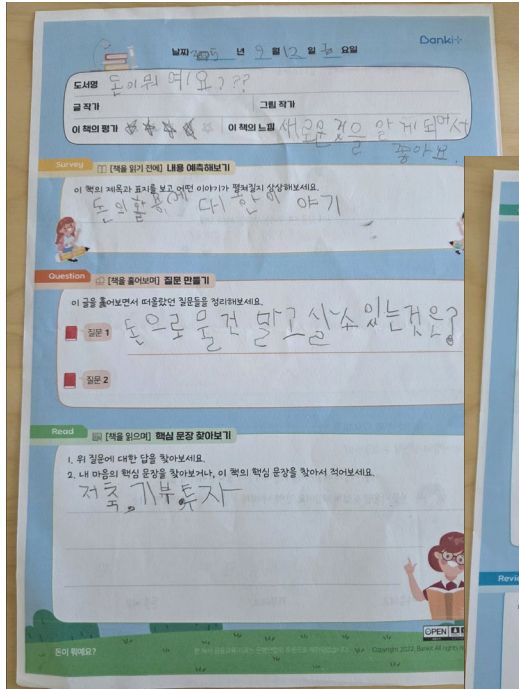 Banki+
날짜 2025 년 9 월 12 일 금 요일
도서명 돈이 뭐 예요???
글 작가 그림 작가
이 책의 평가 ★★★★☆ 이 책의 느낌 새로운 것을 알 게 되어서
좋아요.
Survey [책을 읽기 전에] 내용 예측해보기
이 책의 제목과 표지를 보고 어떤 이야기가 펼쳐질지 상상해보세요.
돈의 활용에 대한 이야기
Question [책을 훑어보며] 질문 만들기
이 글을 훑어보면서 떠올랐던 질문들을 정리해보세요.
질문 1 돈으로 물건 말고 살 수 있는 것은?
질문 2
Read [책을 읽으며] 핵심 문장 찾아보기
1. 위 질문에 대한 답을 찾아보세요.
2. 내 마음의 핵심 문장을 찾아보거나, 이 책의 핵심 문장을 찾아서 적어보세요.
저축, 기부, 투자
Revie
OPEN
돈이 뭐예요?
Copyright 2023. Bankit All rights re